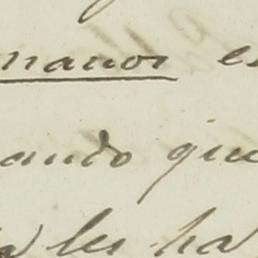 manos es
ando que
les ha